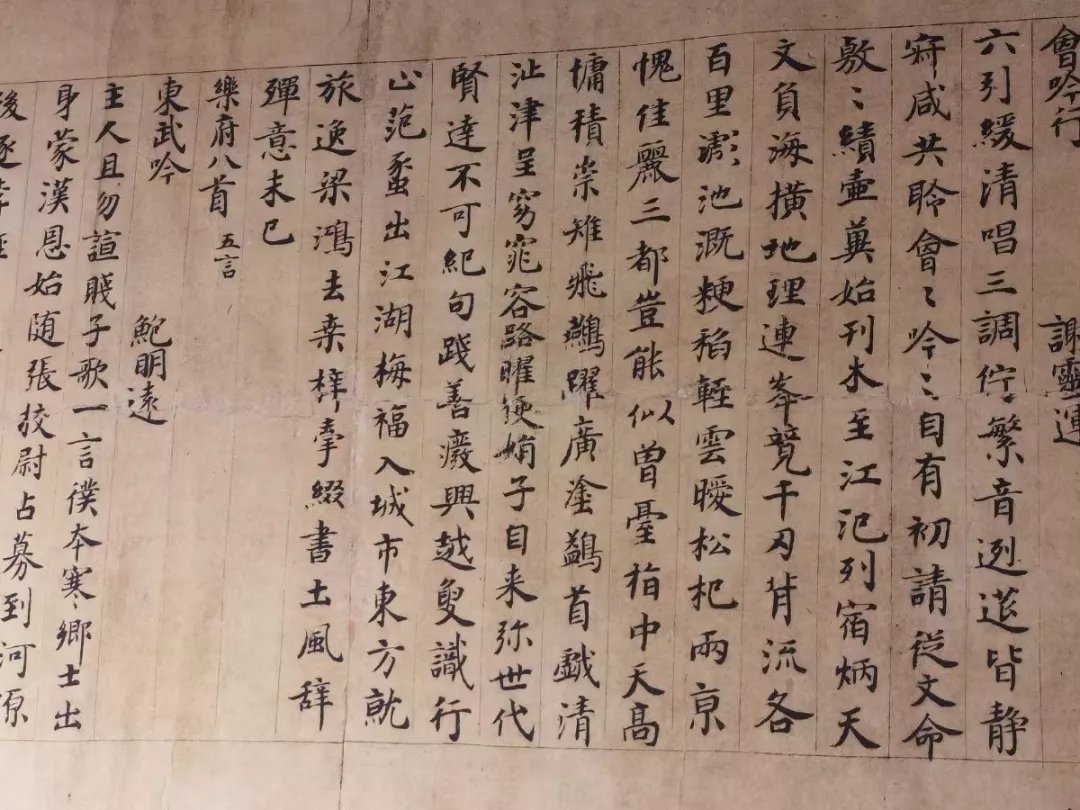 會吟行 謝靈運
六引緩清唱三調佇繁音迾筵皆静
寂咸共聆會〻吟〻自有初請従文命
敷〻績壷冀始刊木至江汜列宿炳天
文負海横地理連峯競千刃背流各
百里滮池溉粳稻軽雲曖松杞兩京
愧佳麗三都豈能似曾臺指中天高
墉積崇雉飛鷰躍廣塗鷁首戱清
沚津呈窈窕容路曜㛹娟子自来弥世代
賢達不可紀句踐善癈興越叟識行
止范蠡出江湖梅福入城市東方就
旅逸梁鴻去桒梓牽綴書土風辞
殫意未已
樂府八首 五言
東武吟 鮑明遠
主人且勿諠賎子歌一言僕夲寒鄉士出
身蒙漢恩始随張挍尉占募到河源
後逐李